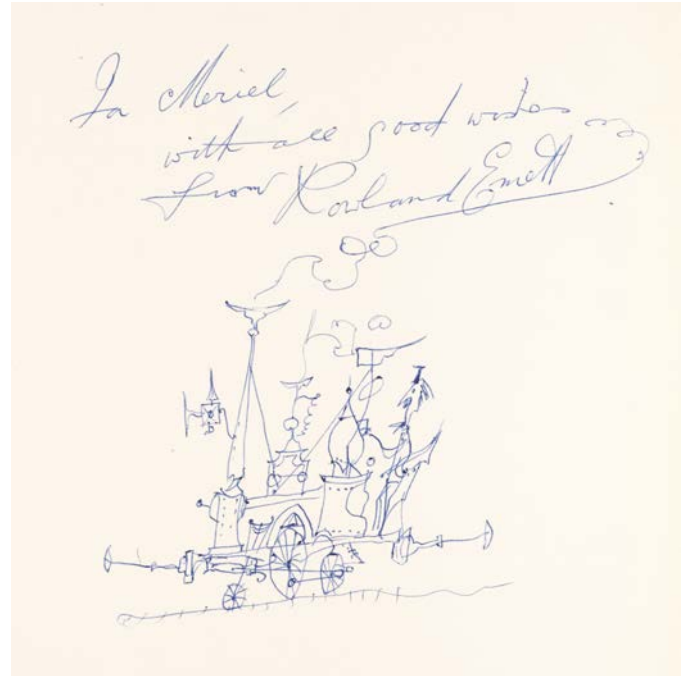 For Meriel,
with all good wishes
from Rowland Emett